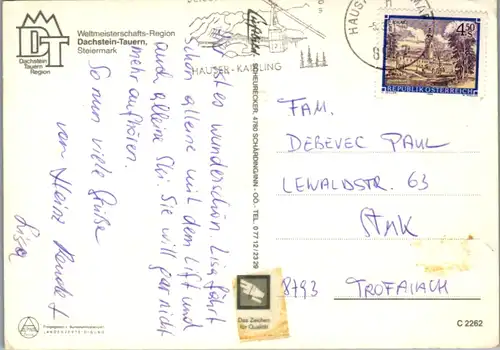 DT
Dachstein
Tauern
Region
Weltmeisterschafts-Region
Dachstein-Tauern,
Steiermark
HAUSER-KAIBLING
HAUS
4.50
REPUBLIK ÖSTERREICH
ist es wunderschön Lisa fährt
schon alleine mit dem Lift und
auch alleine Ski. Sie will gar nicht
mehr aufhören.
So nun viele Grüße
von Heinz
Lisa
SCHEURECKER, 4780 SCHÄRDING/INN - OÖ., TEL. 0 77 12 / 23 29
FAM.
DEBEVEC PAUL
LEWALDSTR. 63
8793 TROFAIACH
Das Zeichen
für Qualität
C 2262